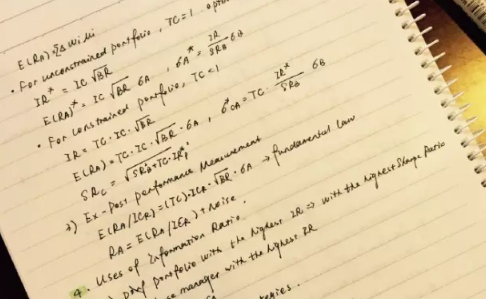 E(RA) = ΣΔWiMi
• For unconstrained portfolio, TC=1
IR* = IC √BR
E(RA)* = IC √BR σA, σA* = IR/SRB σB
• For constrained portfolio, TC<1
IR = TC·IC·√BR
E(RA) = TC·IC·√BR·σA, σ*CA = TC· IR*/SRB σB
SRC = √SRB²+TC²·IR*²
7) Ex-post performance Measurement
E(RA/ICR) = (TC)·ICR·√BR·σA → fundamental law
RA = E(RA/ICR) + Noise.
4. Uses of Information Ratio
portfolio with the highest IR ⇒ with the highest Sharpe Ratio
manager with the highest IR